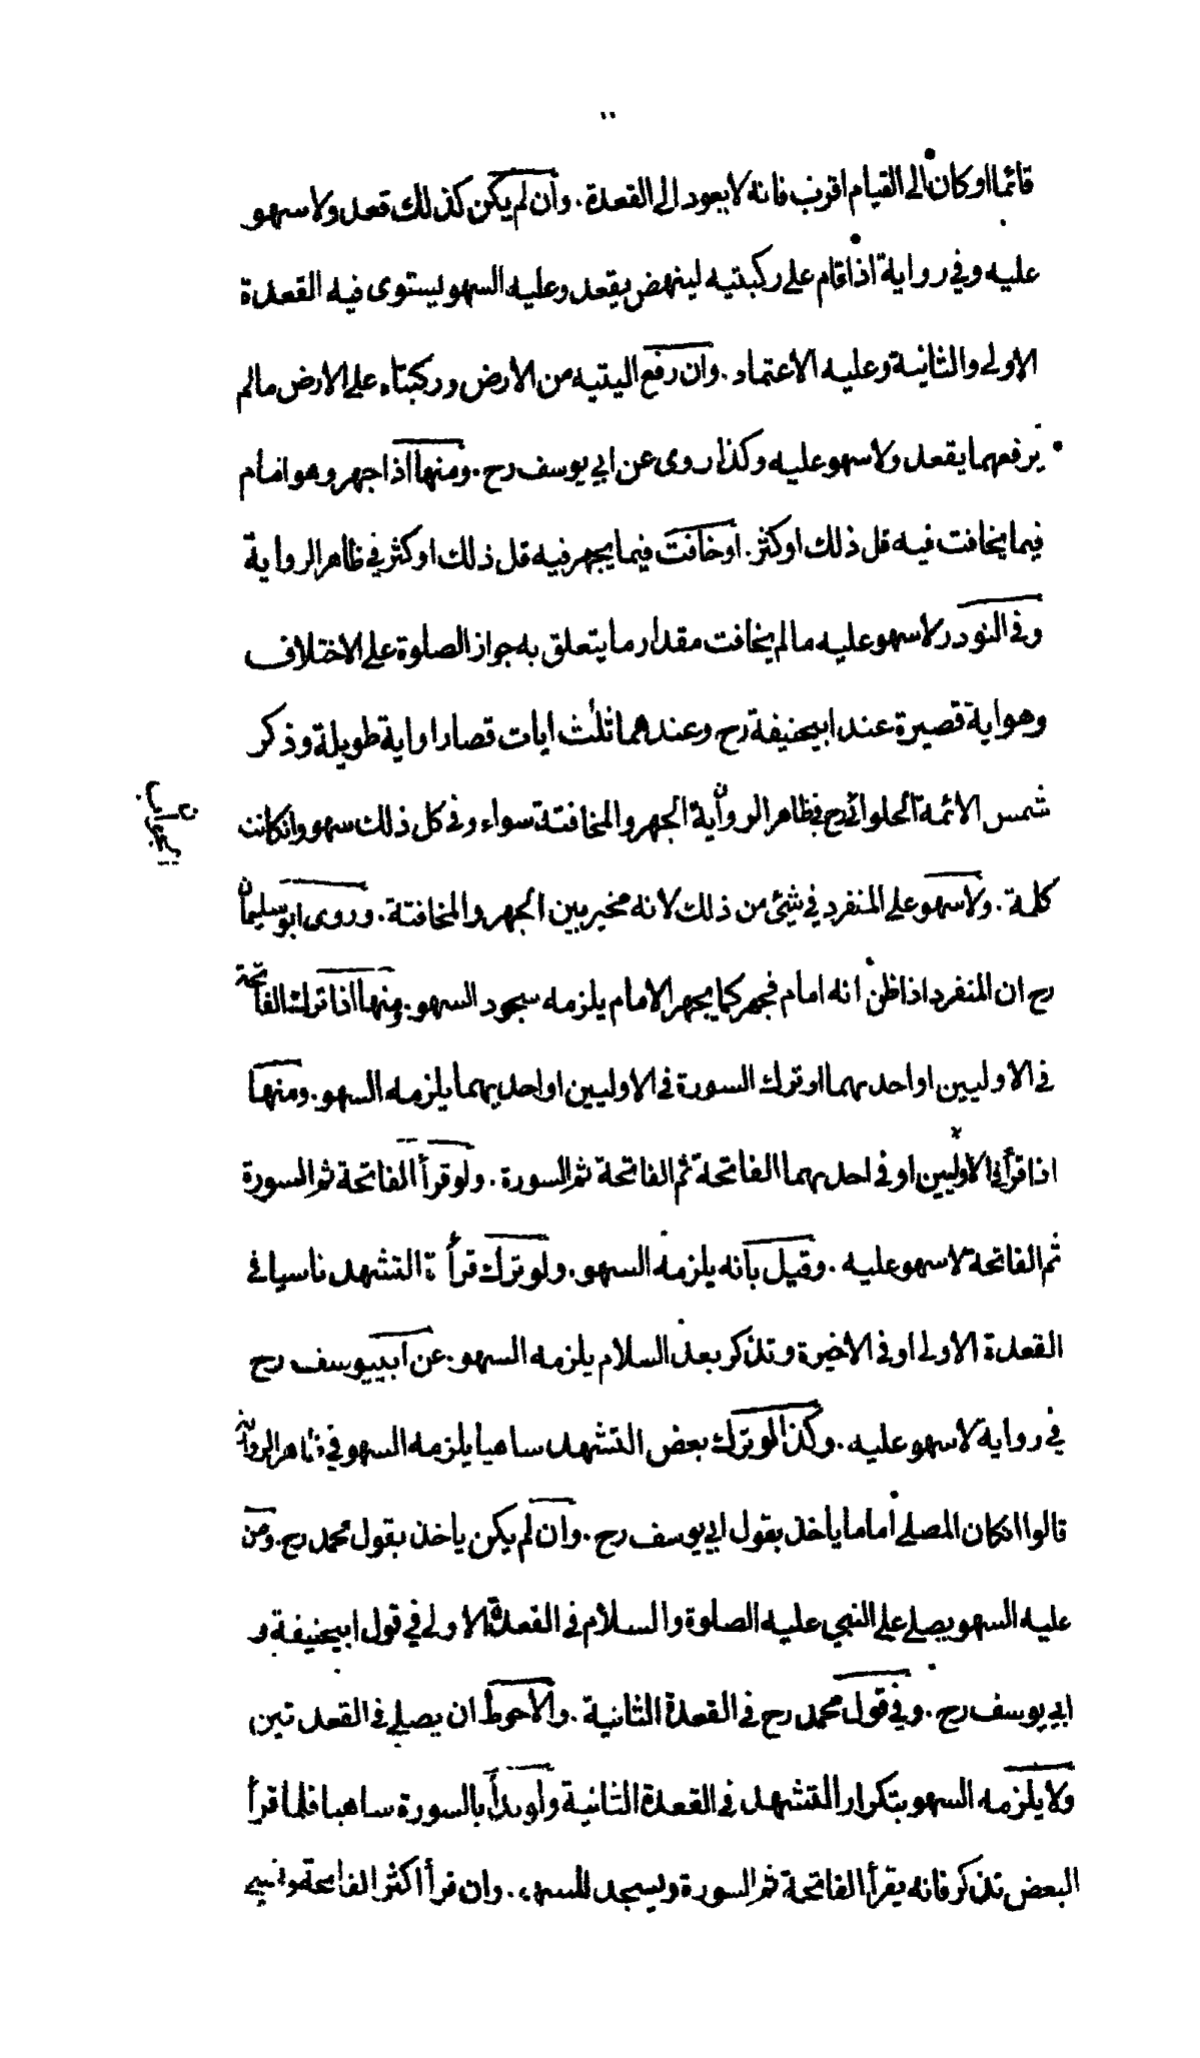 قائما او كان الى القيام اقرب فانه لا يعود الى القعدة. وان لم يكن كذلك قعد ولا سهو
عليه وفي رواية اذا قام على ركبتيه لينهض يقعد وعليه السهو يستوى فيه القعدة
الاولى والثانية وعليه الاعتماد. وان رفع اليتيه من الارض وركبتاه على الارض مالم
يرفعهما يقعد ولا سهو عليه وكذا روى عن ابي يوسف رح. ومنها اذا جهر وهو امام
فيما يخافت فيه قل ذلك او كثر. او خافت فيما يجهر فيه قل ذلك او كثر في ظاهر الرواية
وفى النودر لا سهو عليه مالم يخافت مقدار ما يتعلق به جواز الصلوة على الاختلاف
وهو اية قصيرة عند ابيحنيفة رح وعندهما ثلث ايات قصار او اية طويلة وذكر
شمس الائمة الحلوائى رح في ظاهر الرواية الجهر والمخافتة سواء وفى كل ذلك سهو وانكانت
كلمة. ولا سهو على المنفرد في شيئ من ذلك لانه مخير بين الجهر والمخافتة. وروى ابو سليمان
رح ان المنفرد اذا ظن انه امام فجهر كما يجهر الامام يلزمه سجود السهو. ومنها اذا ترك الفاتحة
فى الاوليين او احديهما او ترك السورة فى الاوليين او احديهما يلزمه السهو. ومنها
اذا قرأ فى الاوليين او فى احديهما الفاتحة ثم الفاتحة ثم السورة. ولو قرأ الفاتحة ثم السورة
ثم الفاتحة لا سهو عليه. وقيل بانه يلزمه السهو. ولو ترك قرأة التشهد ناسيا فى
القعدة الاولى او فى الاخيرة وتذكر بعد السلام يلزمه السهو. عن ابييوسف رح
في رواية لا سهو عليه. وكذا لو ترك بعض التشهد ساهيا يلزمه السهو في ظاهر الرواية
قالوا انكان المصلى اماما ياخذ بقول ابي يوسف رح. وان لم يكن ياخذ بقول محمد رح. ومن
عليه السهو يصلى على النبي عليه الصلوة والسلام فى القعدة الاولى في قول ابيحنيفة و
ابي يوسف رح. وفي قول محمد رح فى القعدة الثانية. والاحوط ان يصلى فى القعدتين
ولا يلزمه السهو بتكرار التشهد فى القعدة الثانية ولو بدأ بالسورة ساهيا فلما قرأ
البعض تذكر فانه يقرأ الفاتحة ثم السورة ويسجد للسهو. وان قرأ اكثر الفاتحة ونسي